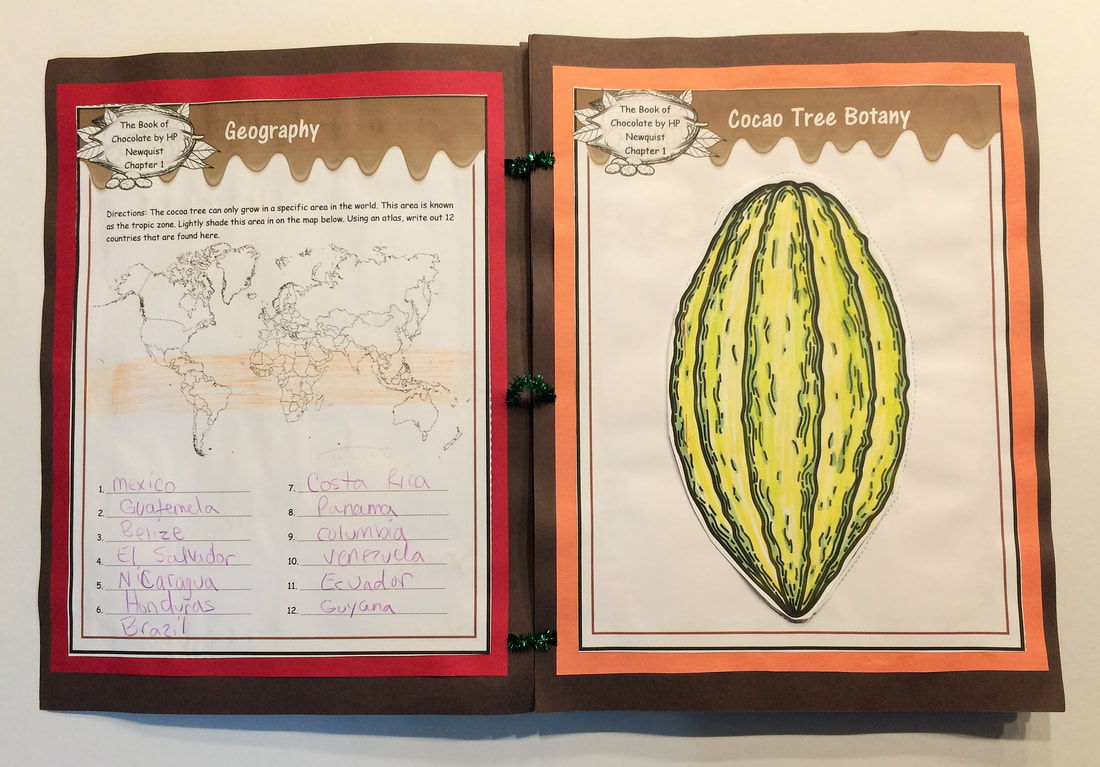 The Book of
Chocolate by HP
Newquist
Chapter 1
Geography
Directions: The cocoa tree can only grow in a specific area in the world. This area is known
as the tropic zone. Lightly shade this area in on the map below. Using an atlas, write out 12
countries that are found here.
1. Mexico
2. Guatemela
3. Belize
4. El Salvador
5. Nicaragua
6. Honduras
Brazil
7. Costa Rica
8. Panama
9. columbia
10. venezuela
11. Ecuador
12. Guyana
The Book of
Chocolate by HP
Newquist
Chapter 1
Cocao Tree Botany